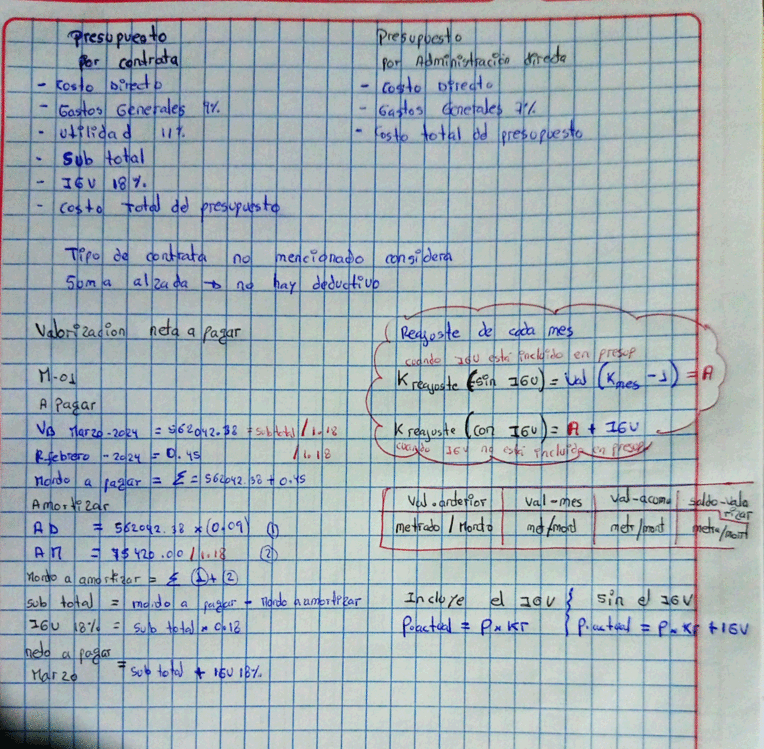 Presupuesto
por contrata
- Costo Directo
- Gastos Generales 9%
- Utilidad 11%
- Sub total
- IGV 18%
- Costo Total del presupuesto
Presupuesto
por Administración directa
- Costo Directo
- Gastos Generales 7%
- Costo total del presupuesto
Tipo de contrata no mencionado considera
Soma alzada → no hay deductivo
Valorizacion neta a pagar
M-01
A Pagar
VB Marzo-2024 = 562042.38 = subtotal / 1.18
R.febrero - 2024 = 0.45 / 1.18
Monto a pagar = Σ = 562042.38 + 0.45
Amortizar
AD = 562042.38 x (0.09) ①
AM = 75420.00 / 1.18 ②
Monto a amortizar = Σ ① + ②
sub total = monto a pagar - Monto a amortizar
IGV 18% = sub total x 0.18
neto a pagar
Marzo = sub total + IGV 18%
Reajuste de cada mes
cuando IGV está incluido en presup
K reajuste (sin IGV) = Val (Kmes - 1) = A
K reajuste (con IGV) = A + IGV
cuando IGV no está incluido en presup
Val. anterior | val-mes | val-acomu | saldo-valorizar
metrado / Monto | met/mont | metr/mont | metra/mont
Incluye el IGV { sin el IGV
P.actual = P x Kr { P.actual = P x Kr + IGV